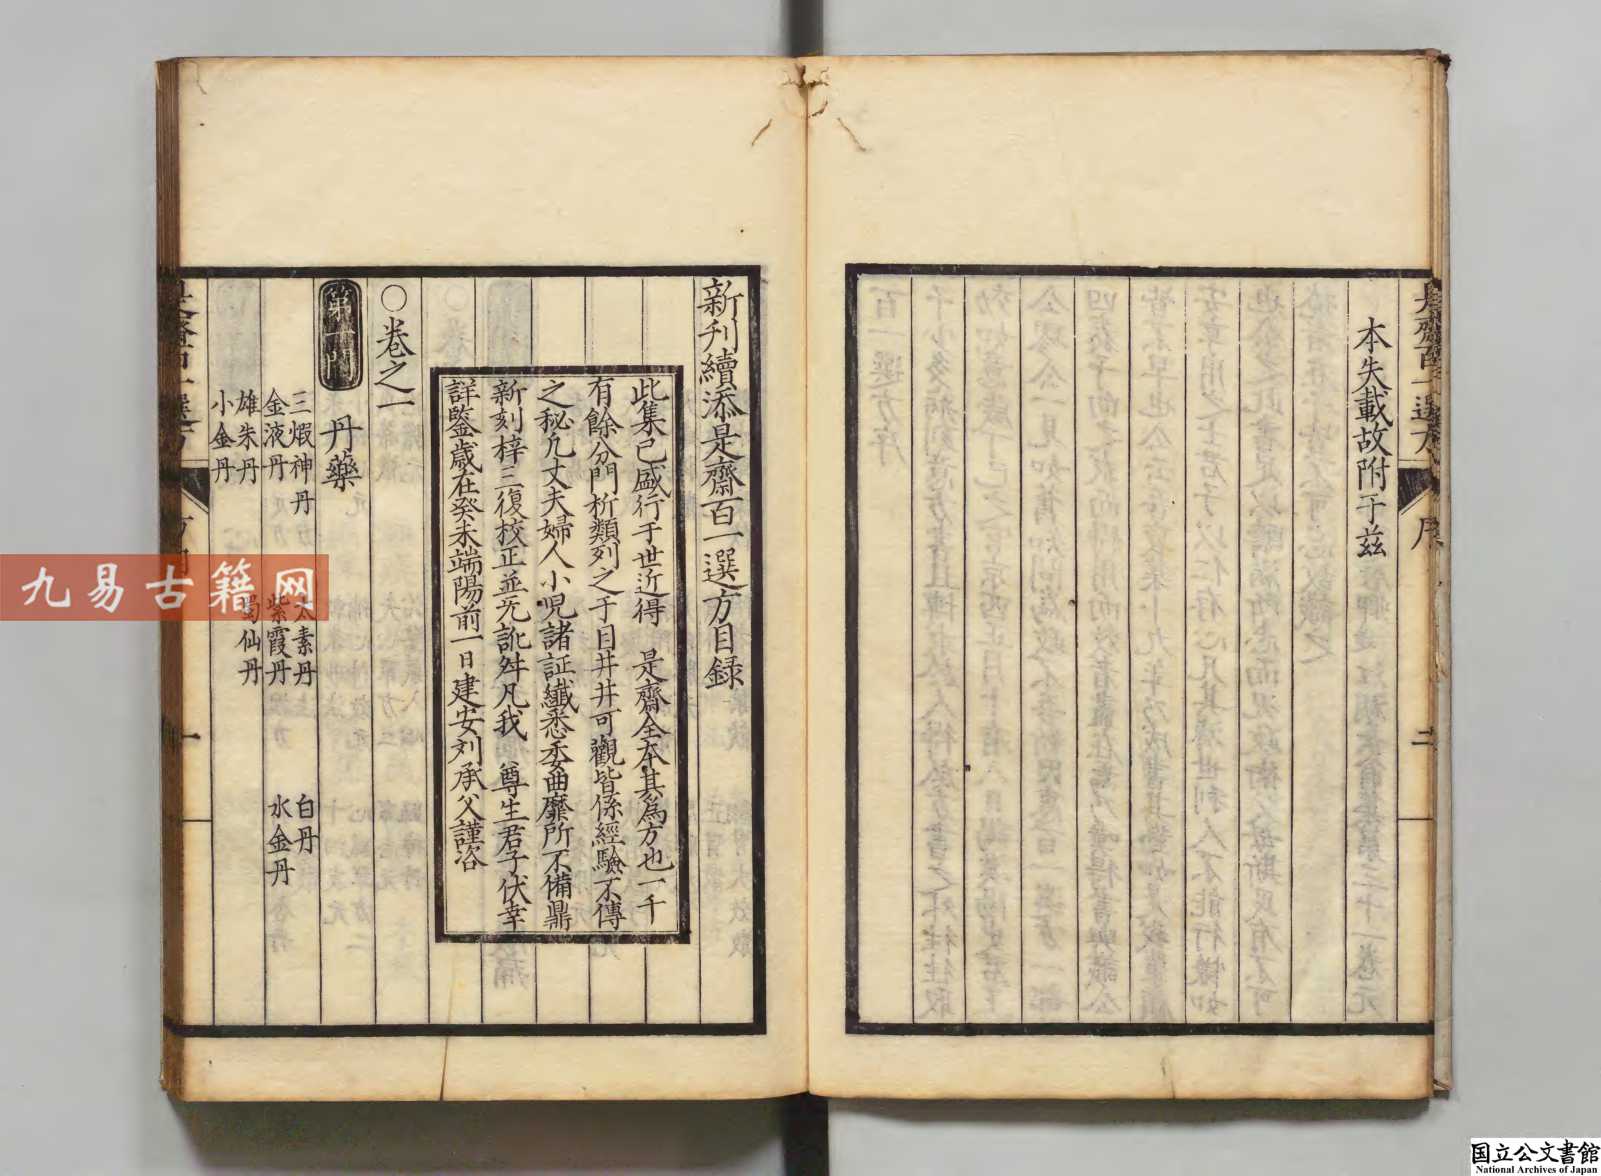 本失載故附于茲
新刋續添是齋百一選方目録
此集已盛行于世近得 是齋全本其爲方也一千
有餘分門析類列之于目井井可觀皆係經驗不傳
之秘凢丈夫婦人小児諸証纎悉委曲靡所不備鼎
新刻梓三復校正並无訛舛凡我 尊生君子伏幸
詳鑒歳在癸未端陽前一日建安刘承父謹咨
〇卷之一
第一門 丹藥
三煆神丹 太素丹 白丹
金液丹 紫霞丹 水金丹
雄朱丹 蜀仙丹
小金丹
九易古籍网
国立公文書館
National Archives of Japan